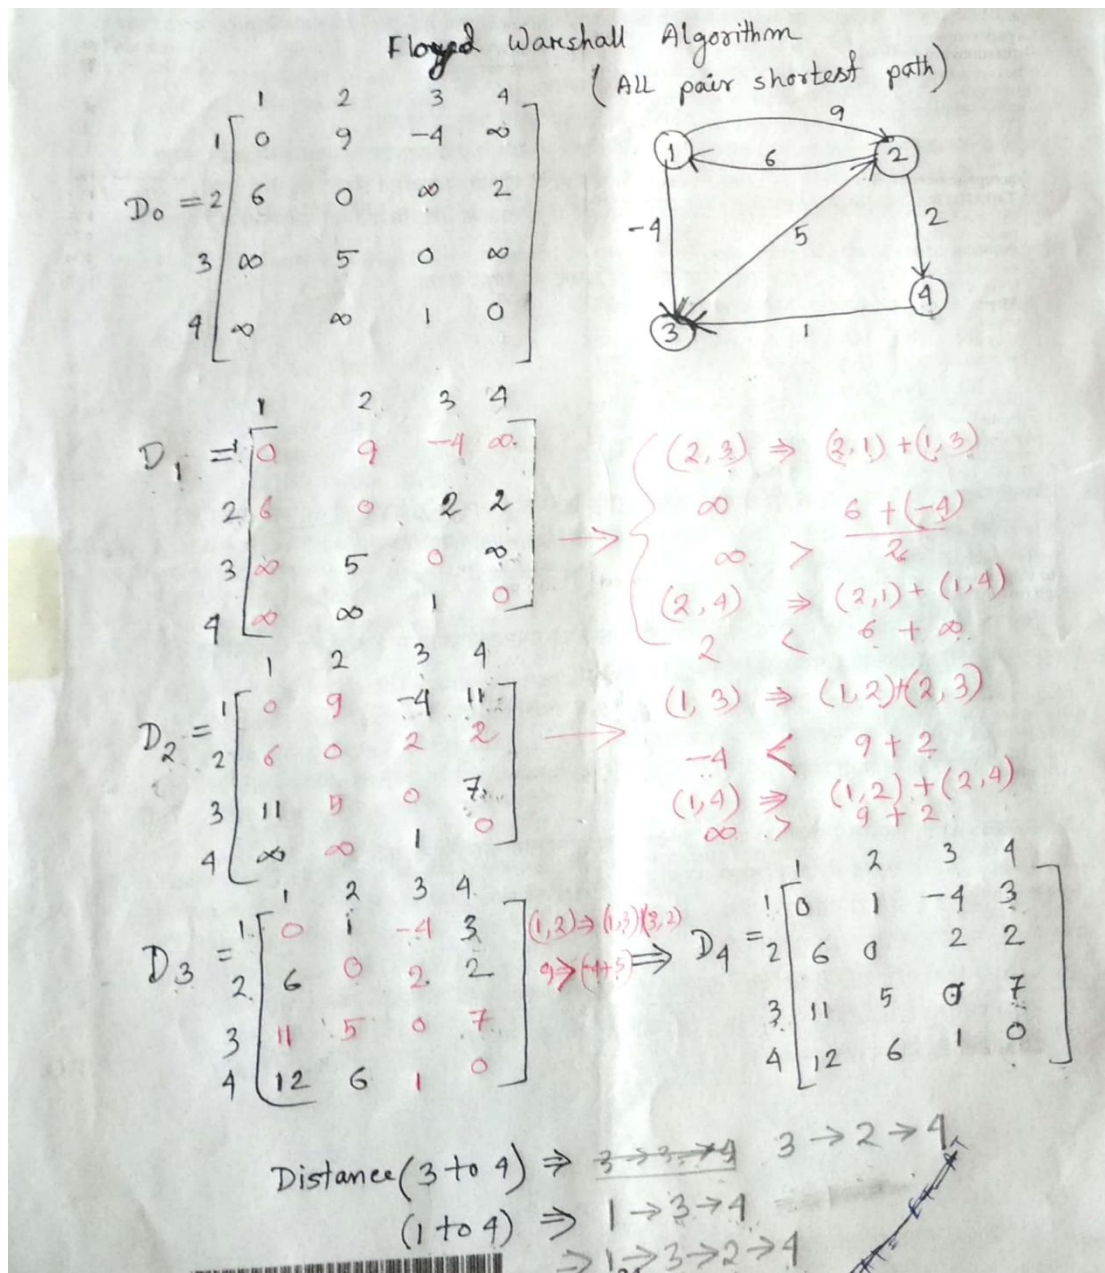 Floyed Warshall Algorithm
(ALL pair shortest path)
1 2 3 4
1 0 9 -4 ∞
D0 = 2 6 0 ∞ 2
3 ∞ 5 0 ∞
4 ∞ ∞ 1 0
9
1 6 2
-4 5 2
4
3 1
1 2 3 4
D1 = 1 0 9 -4 ∞
2 6 0 2 2
3 ∞ 5 0 ∞
4 ∞ ∞ 1 0
(2,3) ⇒ (2,1)+(1,3)
∞ 6 + (-4)
∞ > 2
(2,4) ⇒ (2,1)+(1,4)
2 < 6 + ∞
1 2 3 4
D2 = 1 0 9 -4 11
2 6 0 2 2
3 11 5 0 7
4 ∞ ∞ 1 0
(1,3) ⇒ (1,2)+(2,3)
-4 < 9+2
(1,4) ⇒ (1,2)+(2,4)
∞ > 9+2
1 2 3 4
1 0 1 -4 3
D3 = 2 6 0 2 2
3 11 5 0 7
4 12 6 1 0
(1,3)⇒(1,3)(3,2)
9>(-4+5)
⇒ D4 =
1 2 3 4
1 0 1 -4 3
2 6 0 2 2
3 11 5 0 7
4 12 6 1 0
Distance(3 to 4) ⇒ 3→2→4
(1 to 4) ⇒ 1→3→4
⇒ 1→3→2→4